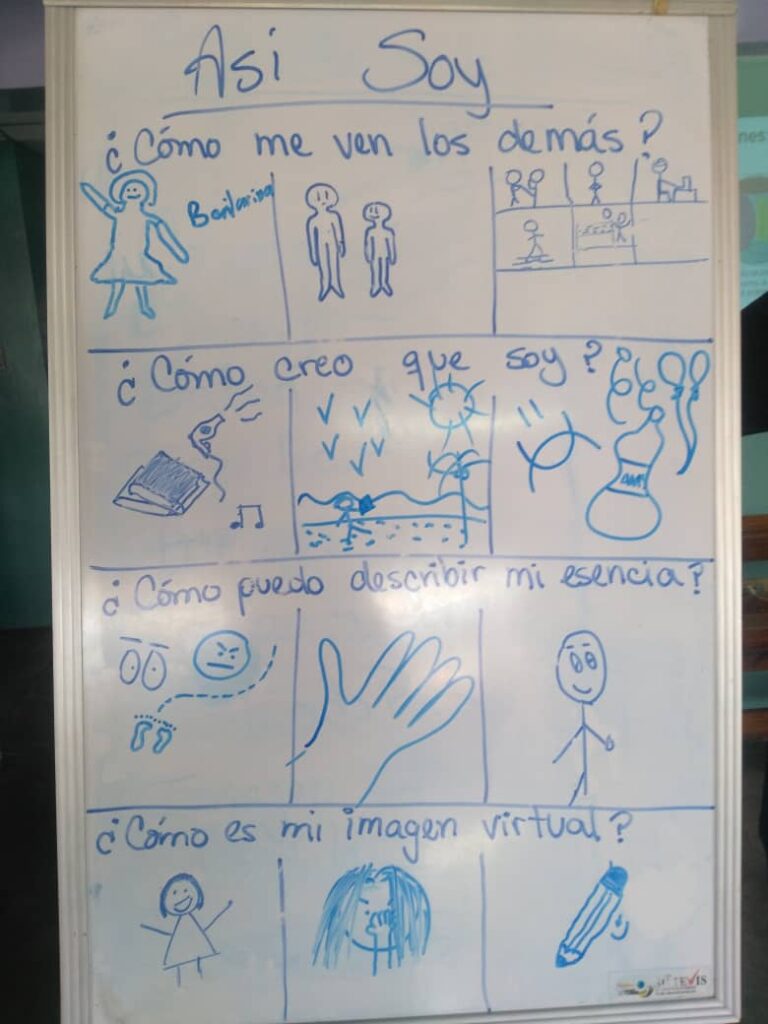 Asi Soy
¿Cómo me ven los demás?
Bailarina
¿Cómo creo que soy?
¿Cómo puedo describir mi esencia?
¿Cómo es mi imagen virtual?